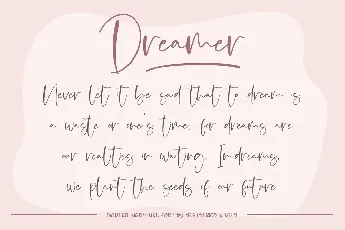 Dreamer
Never let it be said that to dream is
a waste or one's time, for dreams are
our realities in waiting. In dreams,
we plant the seeds of our future